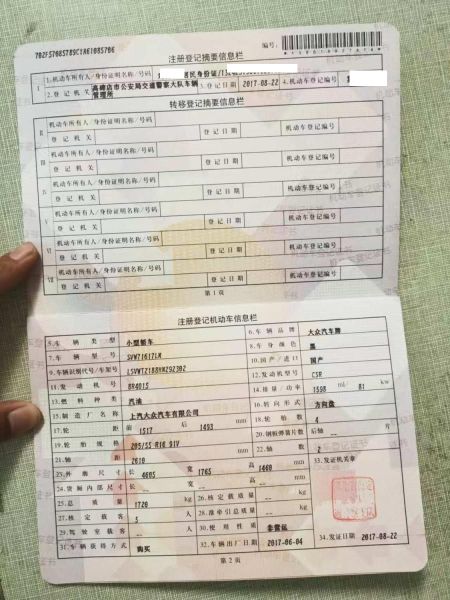 702F57085789C1A61085706
编号:
注册登记摘要信息栏
I
1.机动车所有人/身份证明名称/号码 居民身份证/
2.登记机关 高碑店市公安局交通警察大队车辆管理所 3.登记日期 2017-08-22 4.机动车登记编号
转移登记摘要信息栏
II
机动车所有人/身份证明名称/号码
登记机关 登记日期 机动车登记编号
III
机动车所有人/身份证明名称/号码
登记机关 登记日期 机动车登记编号
机动车所有人/身份证明名称/号码
登记机关 登记日期 机动车登记编号
V
机动车所有人/身份证明名称/号码
登记机关 登记日期 机动车登记编号
VI
机动车所有人/身份证明名称/号码
登记机关 登记日期 机动车登记编号
VII
机动车所有人/身份证明名称/号码
登记机关 登记日期 机动车登记编号
第1页
注册登记机动车信息栏
5.车辆类型 小型轿车 6.车辆品牌 大众汽车牌
7.车辆型号 SVW71617LM 8.车身颜色 黑
9.车辆识别代号/车架号 10.国产/进口 国产
11.发动机号 BR4015 12.发动机型号 CSR
13.燃料种类 汽油 14.排量/功率 1598 ml/ 81 kw
15.制造厂名称 上汽大众汽车有限公司 16.转向形式 方向盘
17.轮距 前 1517 后 1493 mm 18.轮胎数 4
19.轮胎规格 205/55 R16 91V 20.钢板弹簧片数 后轴 -- 片
21.轴距 2610 mm 22.轴数 2
23.外廓尺寸 长 4605 宽 1765 高 1460 mm 33.发证机关章
24.货厢内部尺寸 长 -- 宽 -- 高 -- mm
25.总质量 1720 kg 26.核定载质量 -- kg
27.核定载客 5 人 28.准牵引总质量 -- kg
29.驾驶室载客 -- 人 30.使用性质 非营运
31.车辆获得方式 购买 32.车辆出厂日期 2017-06-04 34.发证日期 2017-08-22
第2页